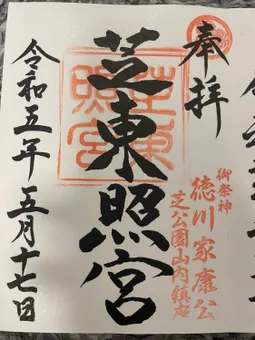 奉拝
御祭神
徳川家康公
芝公園山内鎮座
芝東照宮
令和五年五月十七日